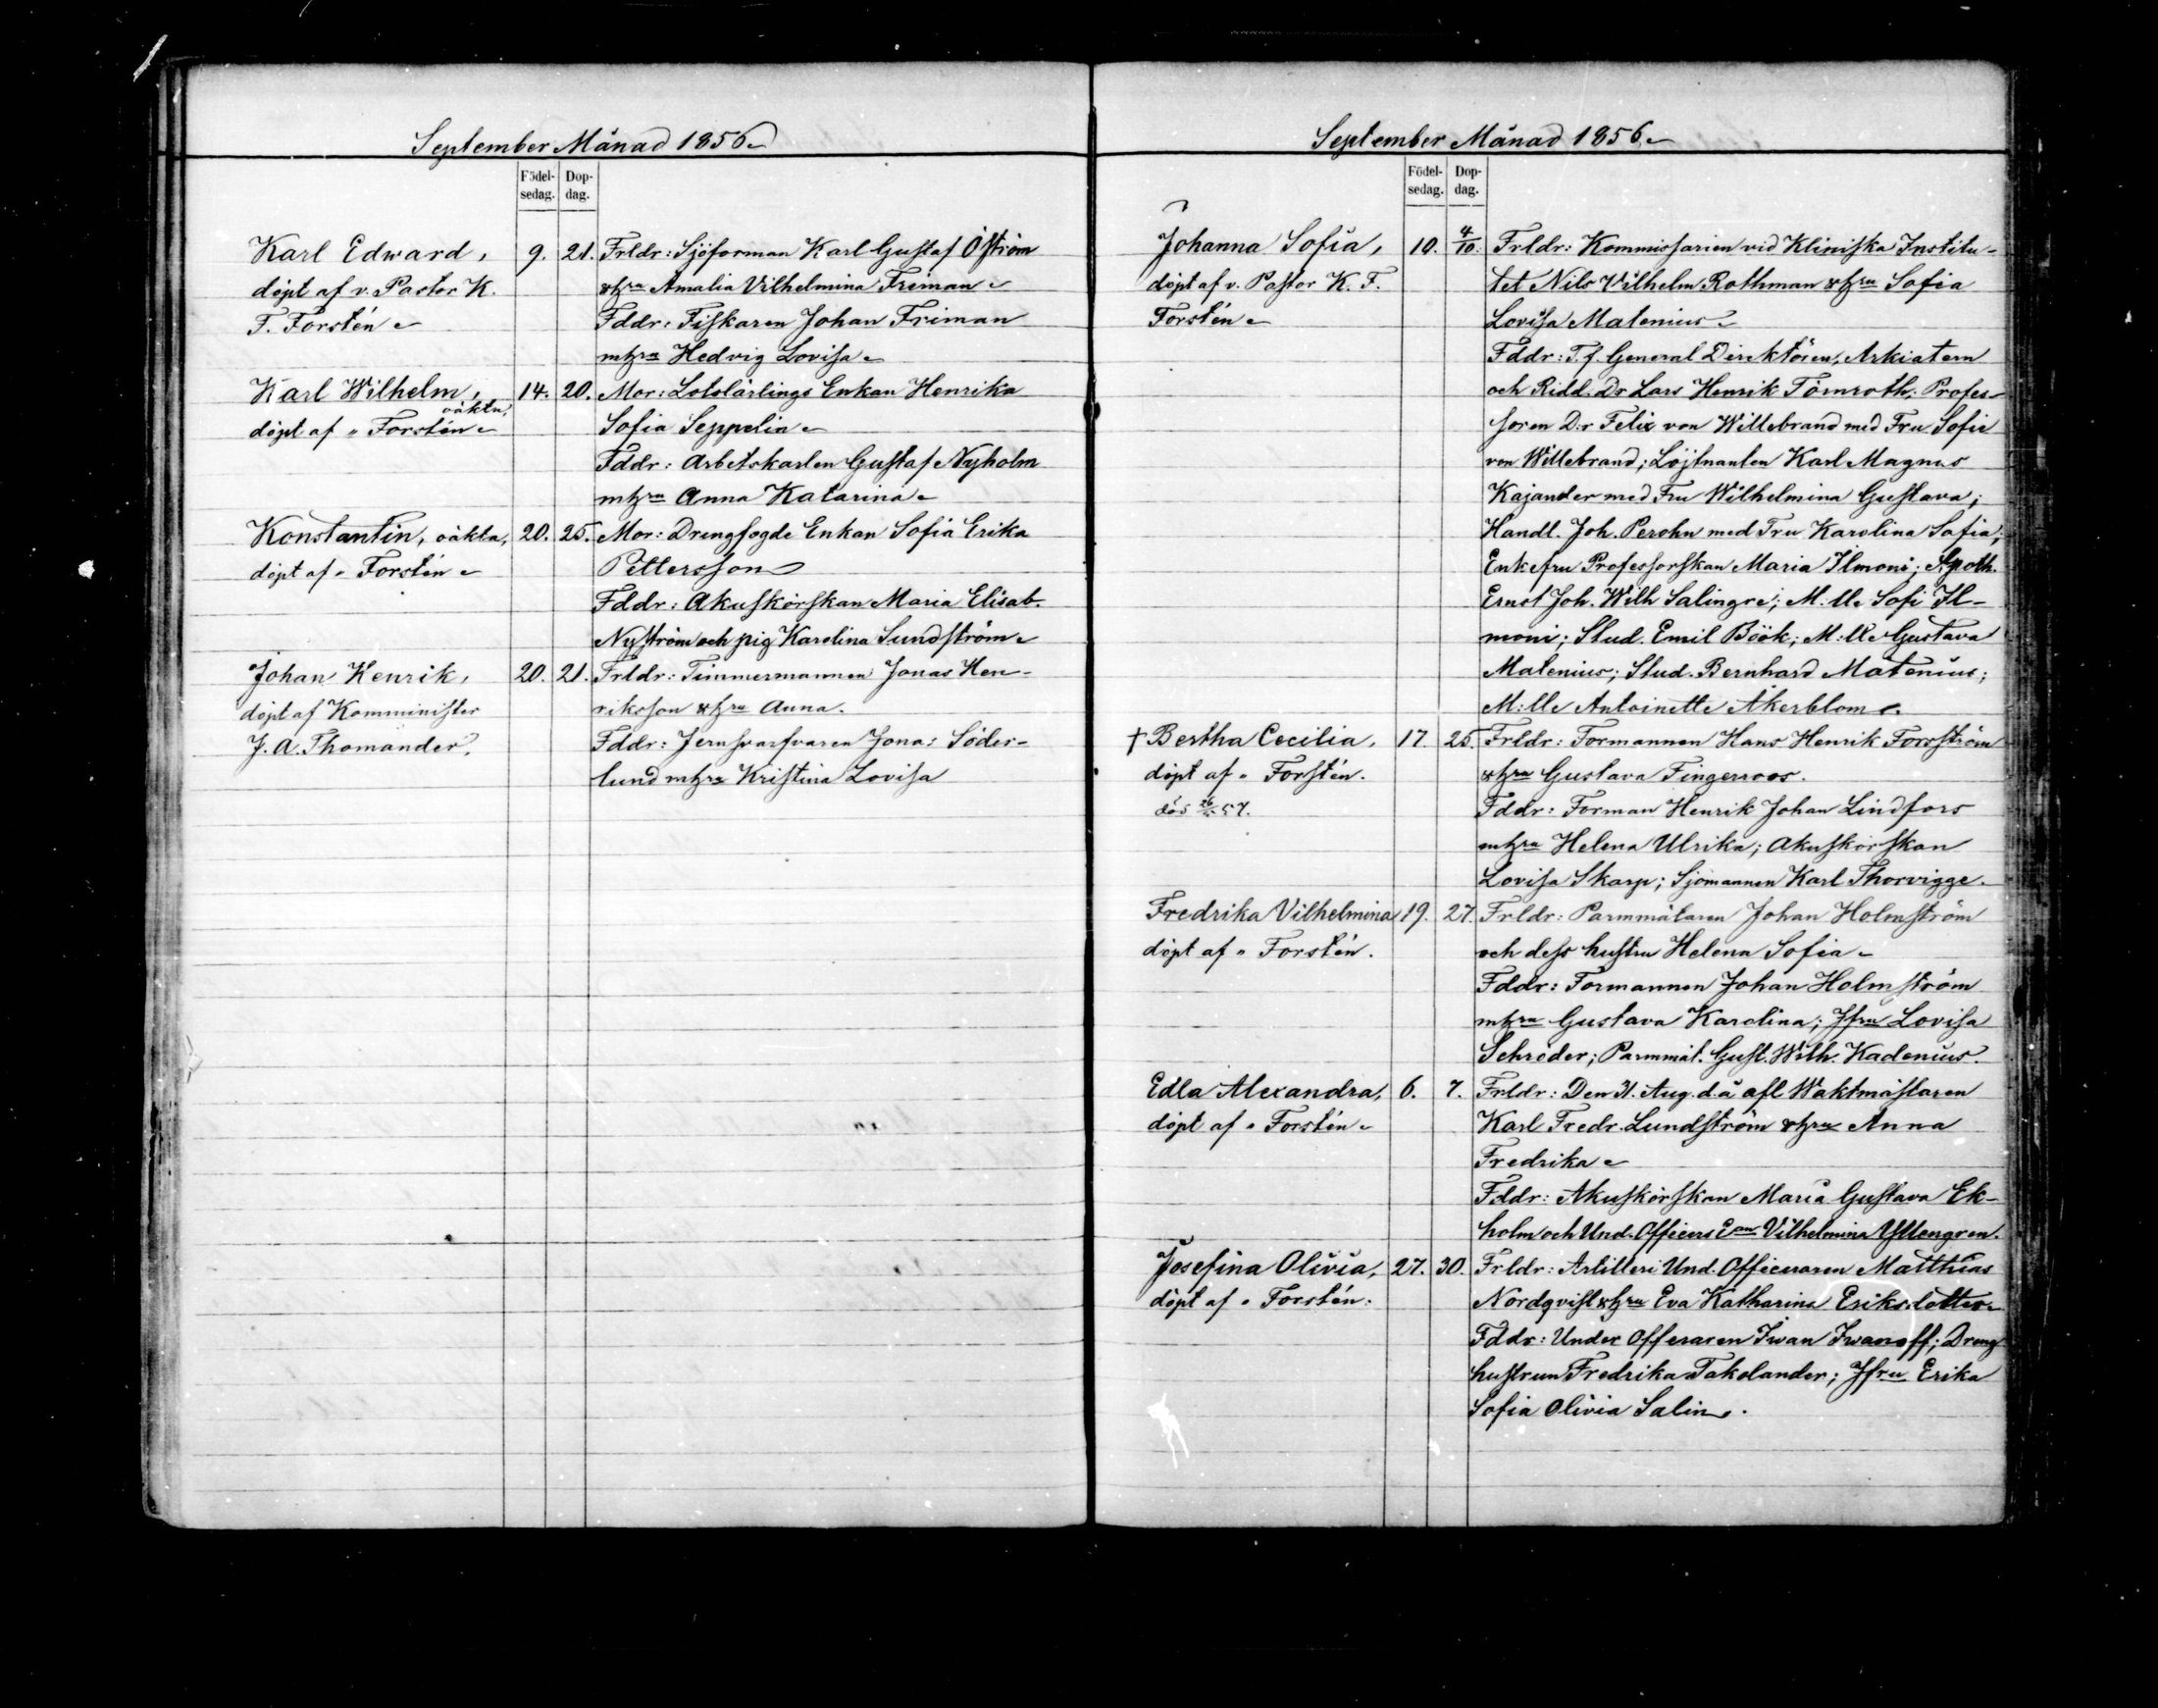 September Månad 1856
Födel-
sedag.
Dop-
dag.
Karl Edward,
döpt af v. Pastor K.
F. Forstén
9. 21.
Frldr: Sjöforman Karl Gustaf Öström
o hru Amalia Vilhelmina Friman
Fddr: Fiskaren Johan Friman
m hru Hedvig Lovisa
Karl Wilhelm,
oäkta,
döpt af " Forstén
14. 20.
Mor: Lotslärlings Enkan Henrika
Sofia Seppelin
Fddr: Arbetskarlen Gustaf Nyholm
m hru Anna Katarina
Konstantin, oäkta,
döpt af " Forstén
20. 25.
Mor: Drengfogde Enkan Sofia Erika
Pettersson
Fddr: Akuskörskan Maria Elisab.
Nyström och pig Karolina Sundström
Johan Henrik,
döpt af Komminister
J. A. Thomander.
20. 21.
Frldr: Timmermannen Jonas Hen-
riksson o hru Anna.
Fddr: Jernsvarfvaren Jonas Söder-
lund m hru Kristina Lovisa
September Månad 1856
Födel-
sedag.
Dop-
dag.
Johanna Sofia,
döpt af v. Pastor K. F.
Forstén
10. 4/10.
Frldr: Kommissarien vid Kliniska Institu-
tet Nils Vilhelm Rothman o hru Sofia
Lovisa Malenius
Fddr: T. f. General Direktören, Arkiatern
och Ridd. Dr Lars Henrik Törnroth; Profes-
soren D:r Felix von Willebrand med Fru Sofie
von Willebrand; Löjtnanten Karl Magnus
Kajander med Fru Wilhelmina Gustava;
Handl. Joh. Perohn med Fru Karolina Sofia;
Enkefru Professorskan Maria Ilmoni; Apoth.
Ernst Joh. Wilh Salingre; M:lle Sofi Il-
moni; Stud. Emil Böök; M:lle Gustava
Malenius; Stud. Bernhard Malenius;
M:lle Antoinette Åkerblom.
† Bertha Cecilia,
döpt af " Forstén.
död 57.
17. 25.
Frldr: Formannen Hans Henrik Forsström
o hru Gustava Fingerroos.
Fddr: Forman Henrik Johan Lindfors
m hru Helena Ulrika; Akuskörskan
Lovisa Skarp; Sjömannen Karl Thorvigge.
Fredrika Vilhelmina
döpt af " Forstén.
19. 27.
Frldr: Parmmätaren Johan Holmström
och dess hustru Helena Sofia
Fddr: Formannen Johan Holmström
m hru Gustava Karolina; Jfru Lovisa
Schröder; Parmmät. Gust. Wilh. Kadenius.
Edla Alexandra,
döpt af " Forstén
6. 7.
Frldr: Den 31. Aug. d. å afl Waktmästaren
Karl Fredr. Lundström o hru Anna
Fredrika
Fddr: Akuskörskan Maria Gustava Ek-
holm och Und. Officers E:an Vilhelmina Yllengren.
Josefina Olivia,
döpt af " Forstén.
27. 30.
Frldr: Artilleri Und. Officeraren Matthias
Nordqvist o hru Eva Katharina Eriksdotter
Fddr: Under Offeraren Iwan Iwanoff; Dreng
hustrun Fredrika Takolander; Jfru Erika
Sofia Olivia Salin.